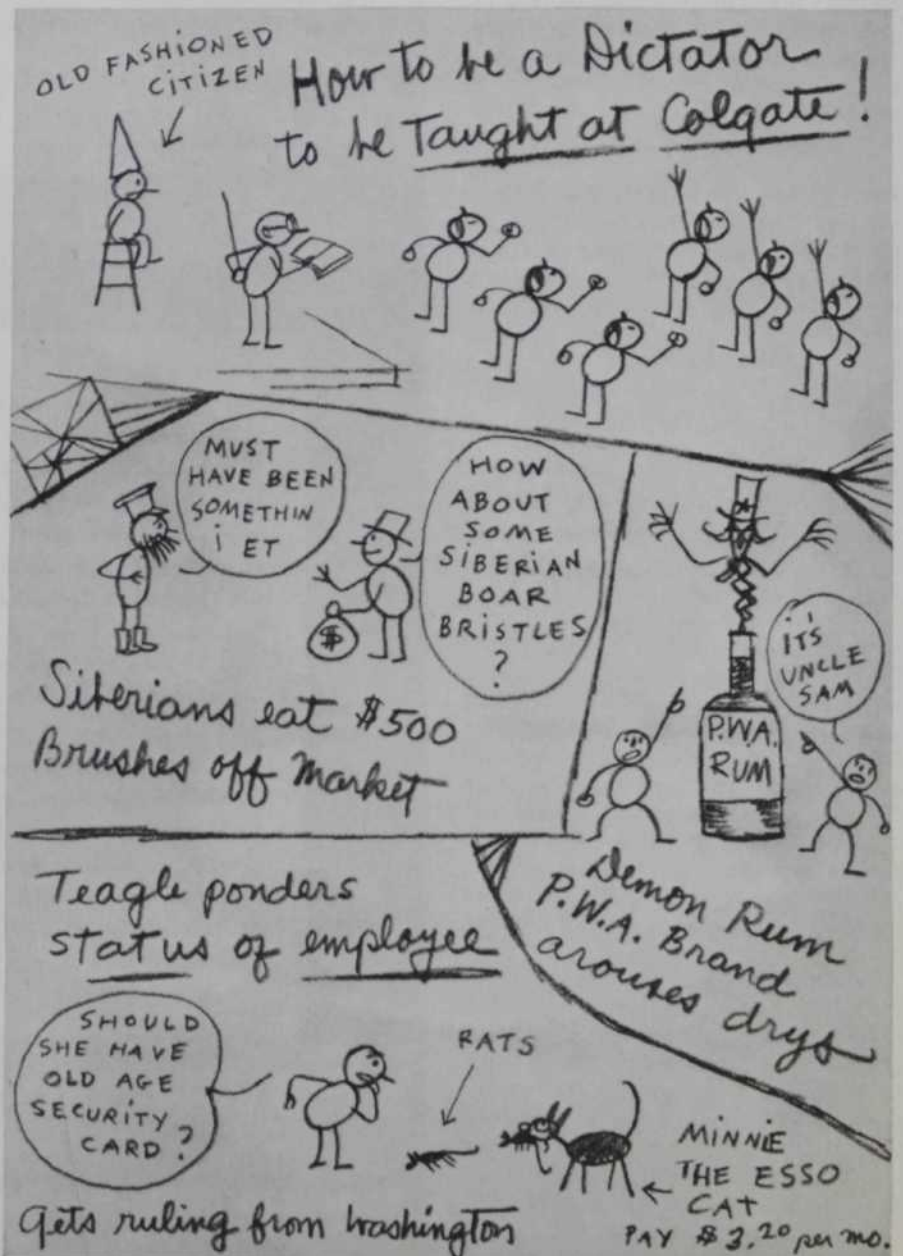 OLD FASHIONED
CITIZEN
How to be a Dictator
to be Taught at Colgate!
MUST
HAVE BEEN
SOMETHIN
i ET
HOW
ABOUT
SOME
SIBERIAN
BOAR
BRISTLES
?
$
Siberians eat $500
Brushes off Market
iT'S
UNCLE
SAM
P.W.A.
RUM
Demon Rum
P.W.A. Brand
arouses drys
Teagle ponders
status of employee
SHOULD
SHE HAVE
OLD AGE
SECURITY
CARD?
RATS
MiNNiE
THE ESSO
CAT
PAY $3.20 per mo.
Gets ruling from Washington